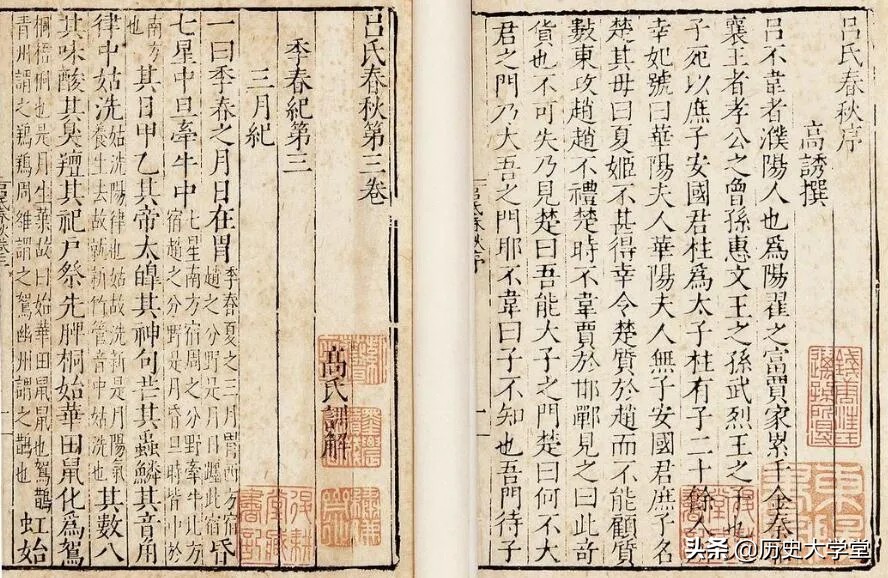 呂氏春秋序
高誘撰
呂不韋者濮陽人也爲陽翟之富賈家累千金秦
襄王者孝公之曾孫惠文王之孫武烈王之子也
子死以庶子安國君柱爲太子柱有子二十餘人
幸妃號曰華陽夫人華陽夫人無子安國君庶子名
楚其母曰夏姬不甚得幸令楚質於趙而不能顧質
數東攻趙趙不禮楚時不韋賈於邯鄲見之曰此奇
貨也不可失乃見楚曰吾能大子之門楚曰何不大
君之門乃大吾之門耶不韋曰子不知也吾門待子
呂氏春秋序
呂氏春秋第三卷
高氏訓解
季春紀第三
三月紀
一曰季春之月日在胃季春夏之三月胃西方宿趙之分野是月日躔此宿昏
七星中旦牽牛中七星南方宿周之分野牽牛北方宿趙之分野是月昏旦時皆中於
南方也其日甲乙其帝太皞其神句芒其蟲鱗其音角
律中姑洗姑洗陽律也姑故洗新是月陽氣養生去故就新竹管音中姑洗也其數八
其味酸其臭羶其祀戶祭先脾桐始華田鼠化爲鴽
桐梧桐也是月生葉故曰始華田鼠鼠也鴽青州謂之周雒謂之鴽幽州謂之也虹始
头条 @历史大学堂